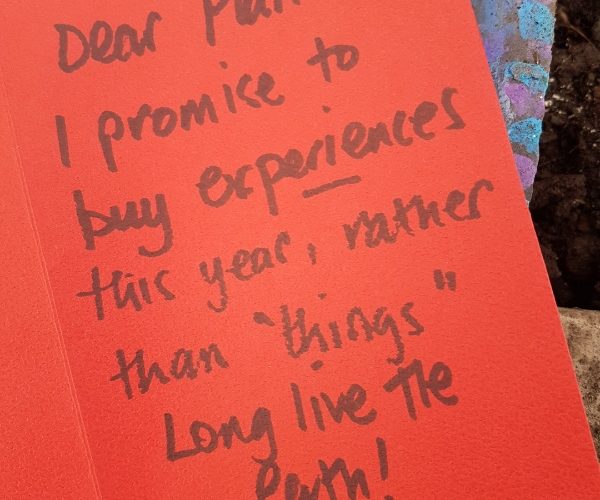 Dear
I promise to
buy experiences
this year, rather
than "things"
Long live The
Earth!